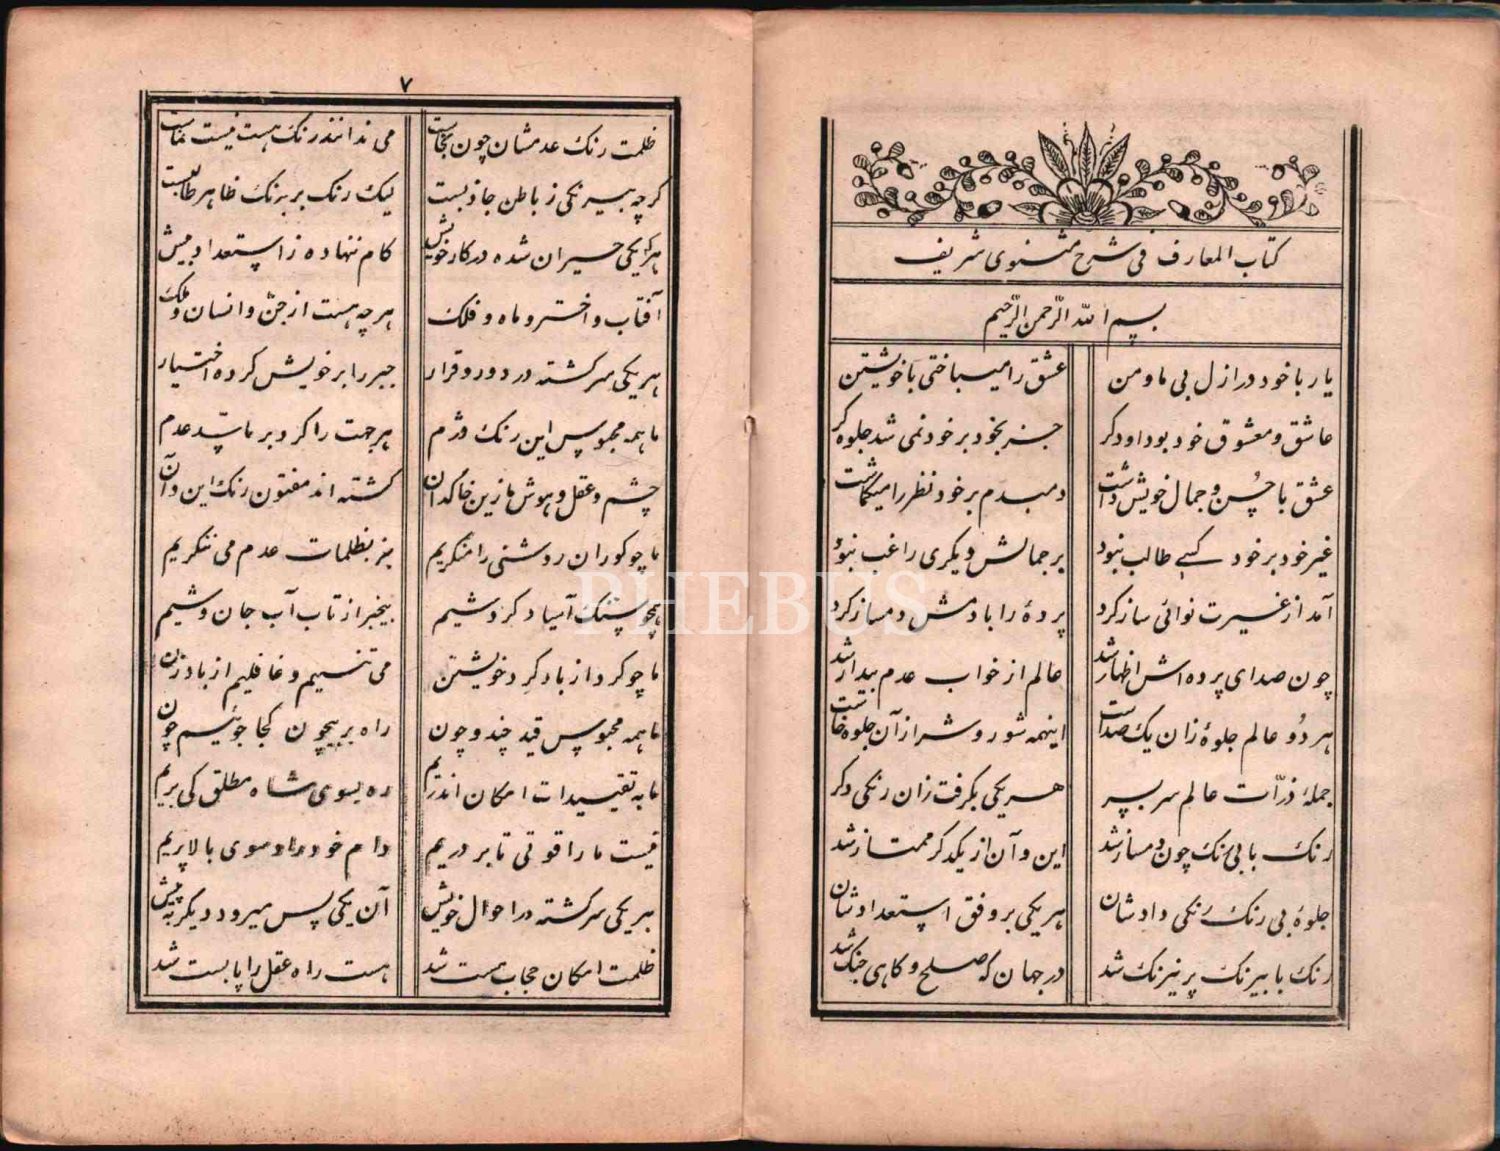 کتاب المعارف فی شرح مثنوی شریف
بسم الله الرّحمن الرّحیم
یار با خود در ازل بی ما و من عشق را میباختی با خویشتن
عاشق و معشوق خود بود او دکر جز بخود بر خود نمی شد جلوه کر
عشق با حُسن و جمال خویش داشت دمبدم بر خود نظر را میکماشت
غیر خود بر خود کسی طالب نبود بر جمالش دیکری راغب نبود
آمد از غیرت نوائی ساز کرد پردهٔ را با دمش دمساز کرد
چون صدای پرده اش اظهار شد عالم از خواب عدم بیدار شد
هر دُو عالم جلوهٔ زان یک صداست اینهمه شور و شر از آن جلوه خاست
جملهٔ ذرّات عالم سر بسر هر یکی بکرفت زان رنکی دکر
رنک با بی رنک چون دمساز شد این و آن از یکدکر ممتاز شد
جلوهٔ بی رنک رنکی دادشان هر یکی بر وفق استعدادشان
رنک با بیرنک پر نیرنک شد در جهان که صلح و کاهی جنک شد
۷
ظلمت رنک عدمشان چون نجاست می ندانند رنک هست نیست ماست
کرچه بیرنکی ز باطن جاذبست لیک رنک بر به رنک ظاهر طالبست
هر یکی حیران شده در کار خویش کام ننهاده ز استعداد بیش
آفتاب و اختر و ماه و فلک هر چه هست از جنّ و انسان و ملک
هر یکی سرکشته در دور و قرار جبر را بر خویش کرده اختیار
ما همه محبوس این رنک دژم هر جهت را کرد بر ما سد عدم
چشم و عقل و هوش ما زین خاکدان کشته اند مفتون رنک این و آن
ما چو کوران روشنی را منکریم جز بظلمات عدم می ننکریم
همچو سنک آسیا در کردشیم بیخبر از تاب آب جان وشیم
ما چو کرد از باد کرد خویشتن می تنیم و غافلیم از باد زن
ما همه محبوس قید چند و چون راه بر بیچون کجا جوئیم چون
ما به تقییدات امکان اندریم ره بسوی شاه مطلق کی بریم
نیست ما را قوتی تا بر دریم دام خود را و سوی بالا پریم
هر یکی سرکشته در احوال خویش آن یکی پس میرود دیکر به پیش
ظلمت امکان حجاب هست شد هست راه عقل را پابست شد
PHEBUS